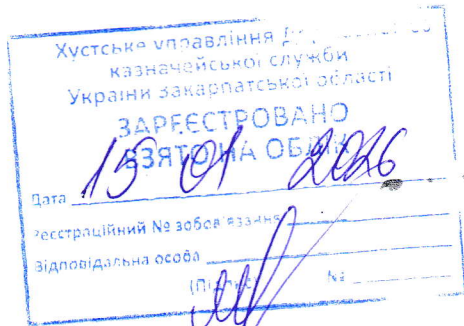 Хустське управління
казначейської служби
України Закарпатської області
ЗАРЕЄСТРОВАНО
ВЗЯТО НА ОБЛІК
Дата 15 01 2026
Реєстраційний № зобов'язання
Відповідальна особа
(Підпис) №